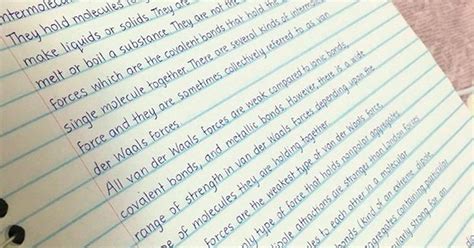 intermolec
They hold molecules to
make liquids or solids. They are
melt or boil a substance. They are not the
forces which are the covalent bonds that hold the
single molecule together. There are several kinds of intermolec
force and they are sometimes collectively referred to as van
der Waals forces.
All van der Waals forces are weak compared to ionic bonds,
covalent bonds, and metallic bonds. However, there is a wide
range of strength in van der Waals forces depending upon the
pe of molecules they are holding together.
forces are the weakest type of van der Waals force.
only type of force that holds nonpolar aggregates
dipole attractions are stronger than London forces
les to each other in a molecular
bonds (kind of an extreme dipole
egates containing particular
larly strong, for an